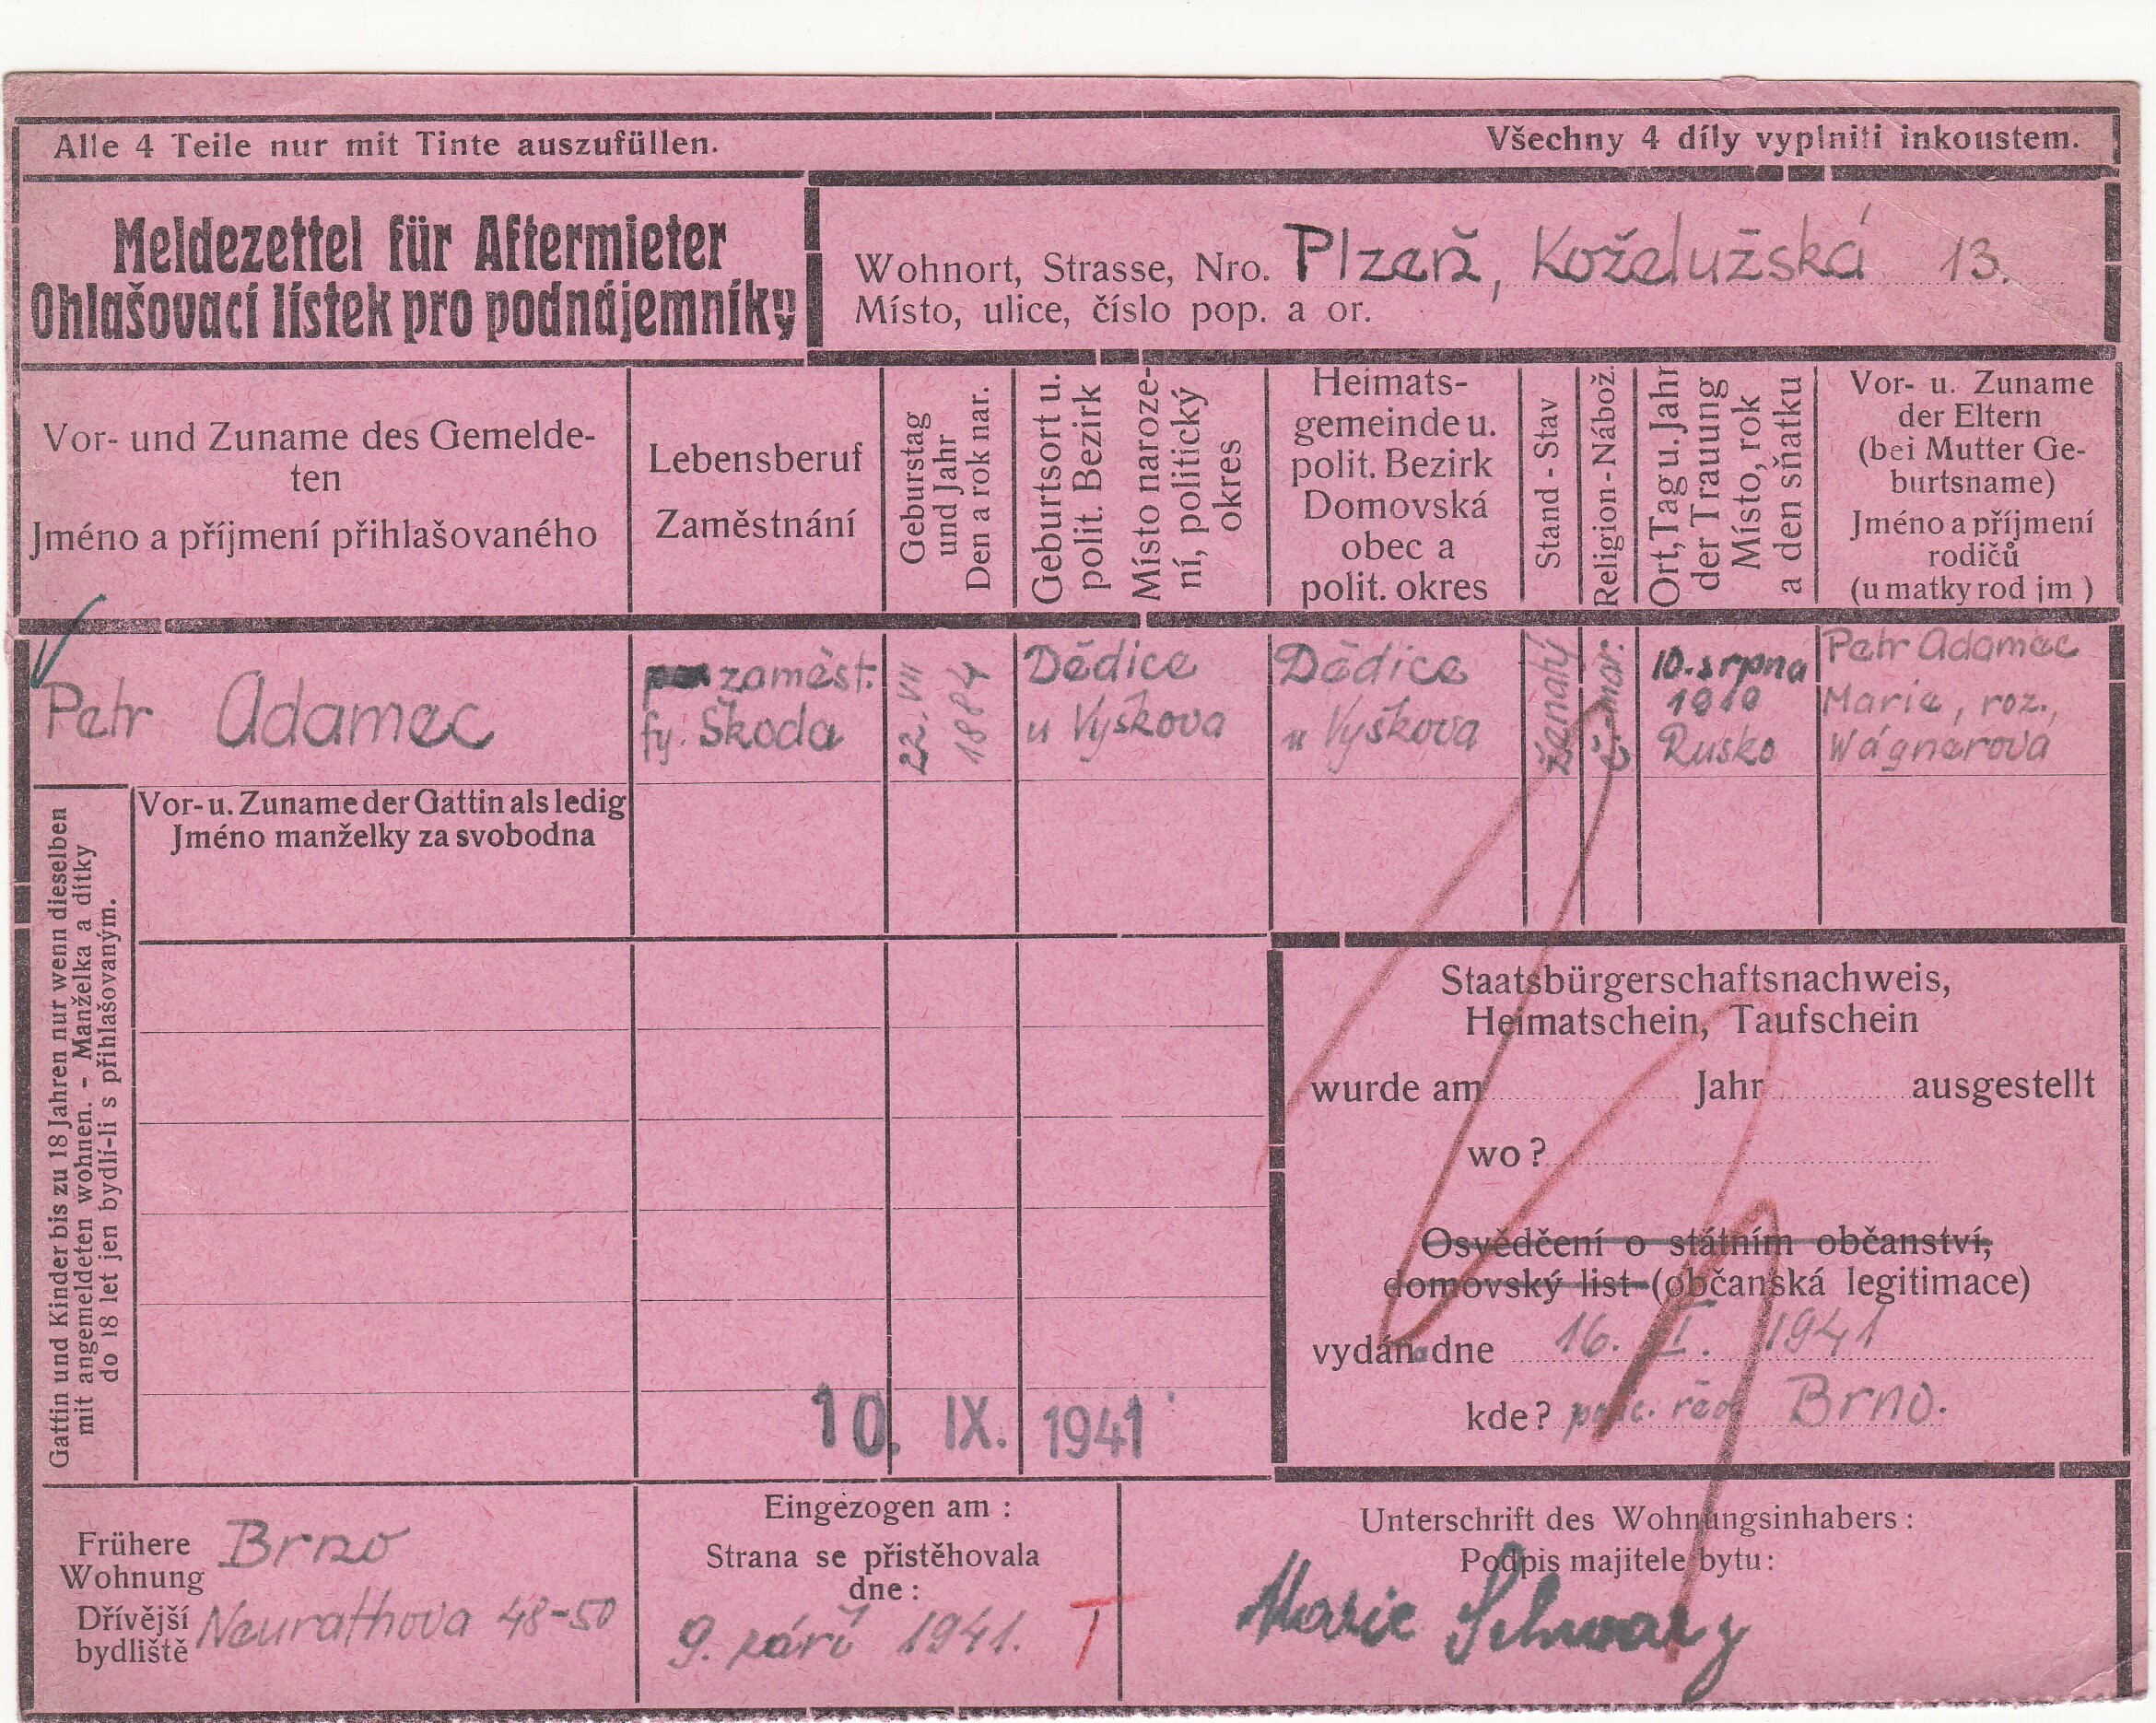 Alle 4 Teile nur mit Tinte auszufüllen.
Všechny 4 díly vyplniti inkoustem.
Meldezettel für Aftermieter
Ohlašovací lístek pro podnájemníky
Wohnort, Strasse, Nro. Plzeň, Koželužská 13.
Místo, ulice, číslo pop. a or.
Vor- und Zuname des Gemelde-
ten
Jméno a příjmení přihlašovaného
Lebensberuf
Zaměstnání
Geburstag
und Jahr
Den a rok nar.
Geburtsort u.
polit. Bezirk
Místo naroze-
ní, politický
okres
Heimats-
gemeinde u.
polit. Bezirk
Domovská
obec a
polit. okres
Stand - Stav
Religion - Nábož.
Ort, Tag u. Jahr
der Trauung
Místo, rok
a den sňatku
Vor- u. Zuname
der Eltern
(bei Mutter Ge-
burtsname)
Jméno a příjmení
rodičů
(u matky rod jm )
Petr Adamec
zaměst.
fy. Škoda
22. VII
1884
Dědice
u Vyškova
Dědice
u Vyškova
ženatý
č. mor.
10. srpna
1919
Rusko
Petr Adamec
Marie, roz.,
Wágnerova
Vor- u. Zuname der Gattin als ledig
Jméno manželky za svobodna
Gattin und Kinder bis zu 18 Jahren nur wenn dieselben
mit angemeldeten wohnen. - Manželka a dítky
do 18 let jen bydlí-li s přihlašovaným.
Staatsbürgerschaftsnachweis,
Heimatschein, Taufschein
wurde am Jahr ausgestellt
wo?
Osvědčení o státním občanství,
domovský list (občanská legitimace)
vydána dne 16. I. 1941
kde? polic. řed. Brno.
10. IX. 1941
Frühere
Wohnung
Dřívější
bydliště
Brno
Neurathova 48-50
Eingezogen am :
Strana se přistěhovala
dne :
9. září 1941.
Unterschrift des Wohnungsinhabers :
Podpis majitele bytu :
Marie Schwarz